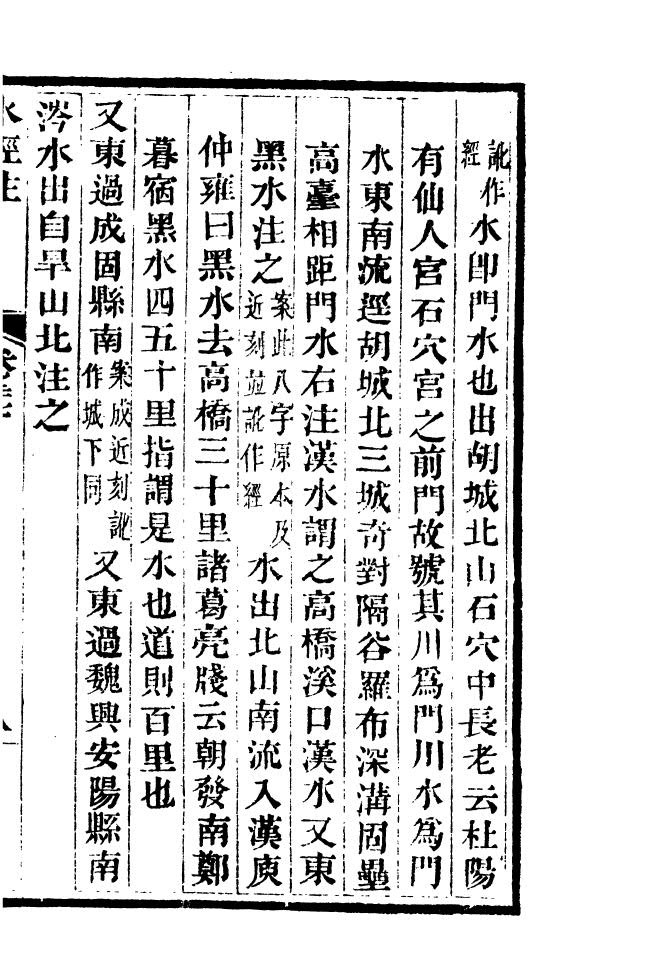 訛作經水卽門水也出胡城北山石穴中長老云杜陽
有仙人宮石穴宮之前門故號其川爲門川水爲門
水東南流逕胡城北三城奇對隔谷羅布深溝固壘
高臺相距門水右注漢水謂之高橋溪口漢水又東
黑水注之案此八字原本及近刻並訛作經水出北山南流入漢庾
仲雍曰黑水去高橋三十里諸葛亮牋云朝發南鄭
暮宿黑水四五十里指謂是水也道則百里也
又東過成固縣南案成近刻訛作城下同又東過魏興安陽縣南
涔水出自旱山北注之
水經注